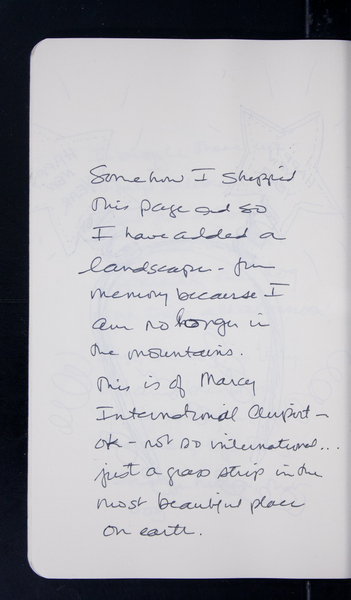 Somehow I skipped
this page and so
I have added a
landscape - from
memory because I
am no longer in
the mountains.
This is of Marcy
International Airport -
ok - not so international...
just a grass strip in the
most beautiful place
on earth.